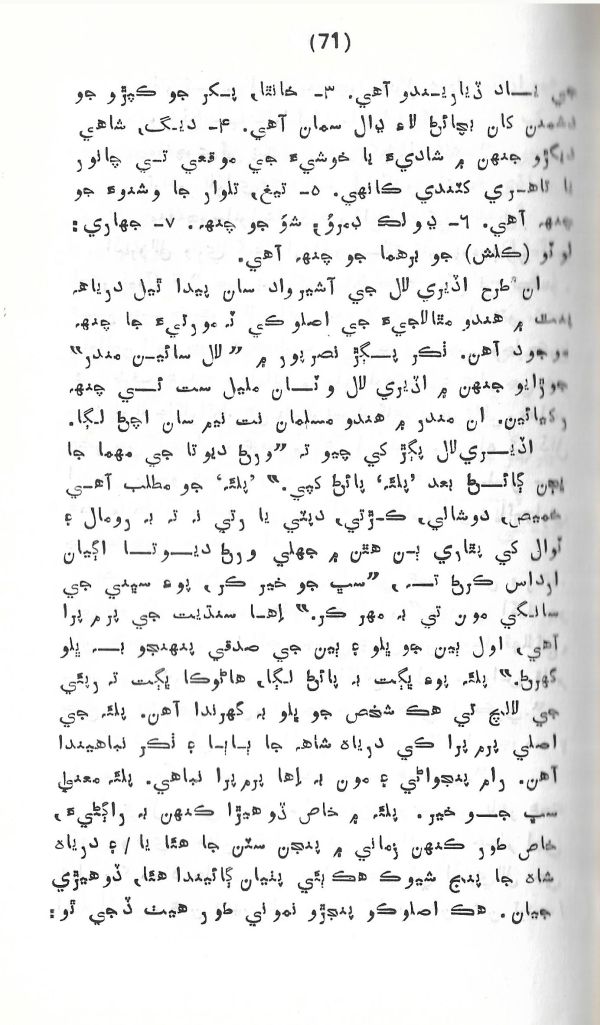 (71)
جي يـــاد ڏياريـندو آهي. ۳ـ خانٿا، پـکر جو ڪپڙو جو
دشمن کان بچائڻ لاءِ ڍال سمان آهي. ۴ـ ديـگ، شاهي
ديگڙو جنهن ۾ شاديءَ يا خوشيءَ جي موقعي تـي چانور
يا تاهـري کٽندي کانهي. ۵ـ تيغ، تلوار جا وشنوءَ جو
چنهہ آهي. ۶ـ ڍولڪ ڊمرؤُ، شِوَ جو چنهہ. ۷ـ جهاري:
لوٽو (ڪلش) جو برهما جو چنهہ آهي.
ان طرح اڏيري لال جي آشيرواد سان پيدا ٿيل درياهہ
۾ هندو مٿالاجيءَ جي اصلوڪي ٽہ مورتيءَ جا چنهہ
موجود آهن. ٺڪر پـــگڙ نصرپور ۾ ”لال سائيـن مندر“
جوڙايو جنهن ۾ اڏيري لال وٽــان مليل ست ئـــي چنهہ
رکيائين. ان مندر ۾ هندو مسلمان نت نيم سان اچڻ لـڳا.
اڏيـــري‌لال پڳڙ کي چيو تہ ”ورڻ ديوتا جي مهما جا
ڀڄن ڳائـــڻ بعد ’پلئہ‘ پائڻ کپي.“ ’پلئہ‘ جو مطلب آهـي
خميص، دوشالي، ڪـڙتي، دپٽي يا رتي نہ تہ بہ رومال ۽
ٽوال کي پٿاري ٻـن هٿن ۾ جهلي ورڻ ديـــوتـــا اڳيان
ارداس ڪرڻ تـــہ، ”سڀ جو خير ڪر، پوءِ سڀني جي
سانـگي مون تي بہ مهر ڪر.“ اِهـا سنڌيت جي پرمپرا
آهي، اول ٻين جو ڀلو ۽ ٻين جي صدقي پنهنجو بـــہ ڀلو
گهرڻ.“ پلئہ پوءِ ڀڳت بہ پائڻ لـڳا، هاڻوڪا ڀڳت تہ رپئي
جي لالچ تي هڪ شخص جو ڀلو بہ گهرندا آهن. پلئہ جي
اصلي پرمپرا کي درياهہ شاهہ جا ٻـاٻـا ۽ ٺڪر نباهيندا
آهن. رام پنجواڻي ۽ مون بہ اِها پرمپرا نباهي. پلئہ معنيٰ
سڀ جـــو خير. پلئہ ۾ خاص ڏوهيڙا ڪنهن بہ راڳڻيءَ،
خاص طور ڪنهن زماني ۾ پنجن سٽن جا هئا يا / ۽ درياهہ
شاهہ جا پنج شيوڪ هڪٻئي پٺيان ڳائيندا هئا، ڏوهيڙي
جيان. هڪ اصلوڪو پنجڙو نموني طور هيٺ ڏجي ٿو: